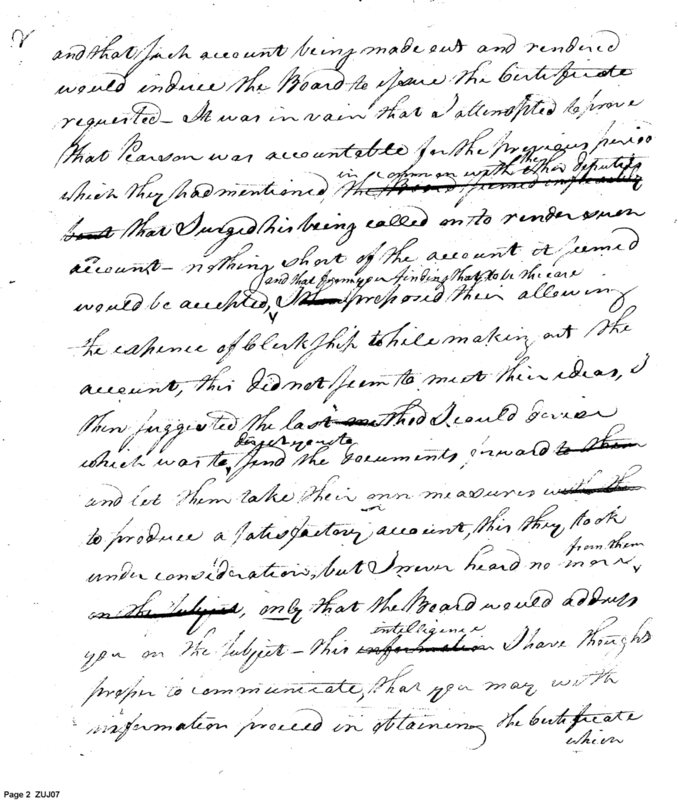 2
and that such account being made out and rendered
would induce the Board to issue the Certificate
requested – It was in vain that I attempted to prove
that Pearson was accountable for the previous period
in common with the other deputies
which they had mentioned the Board seemed
but that I urged his being called on to render such
account – nothing short of the account it seemed
and that from your finding that to be the case
would be accepted, I then proposed their allowing
the expence of Clerkship while making out the
account, this did not seem to meet their ideas, I
then suggested the last method I could devise
direct you to
which was to send the documents forward to them
and let them take their own measures with them
to produce a satisfactory account, this they took
from them
under consideration, but I never heard no more
on the subject, only that the Board would address
intelligence
you on the subject – this information I have thought
proper to communicate, that you may with
information proceed in obtaining the Certificate
which
Page 2 ZUJ07